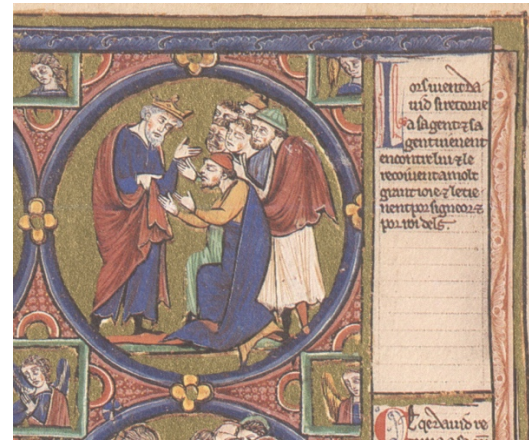 Lors uient da
uid si retorne
a sa gent ⁊ sa
gent uienent
encontre lui ⁊ le
recoiuent a molt
grant ioie ⁊ le tie
nent por signeor ⁊
por roi dels.
Ce qe dauid re